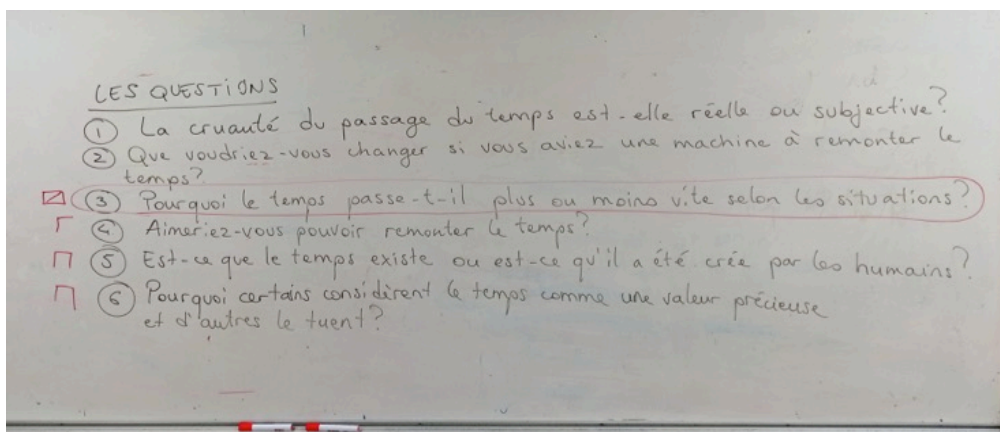 LES QUESTIONS
① La cruauté du passage du temps est-elle réelle ou subjective?
② Que voudriez-vous changer si vous aviez une machine à remonter le
temps?
③ Pourquoi le temps passe-t-il plus ou moins vite selon les situations?
④ Aimeriez-vous pouvoir remonter le temps?
⑤ Est-ce que le temps existe ou est-ce qu'il a été crée par les humains?
⑥ Pourquoi certains considèrent le temps comme une valeur précieuse
et d'autres le tuent?